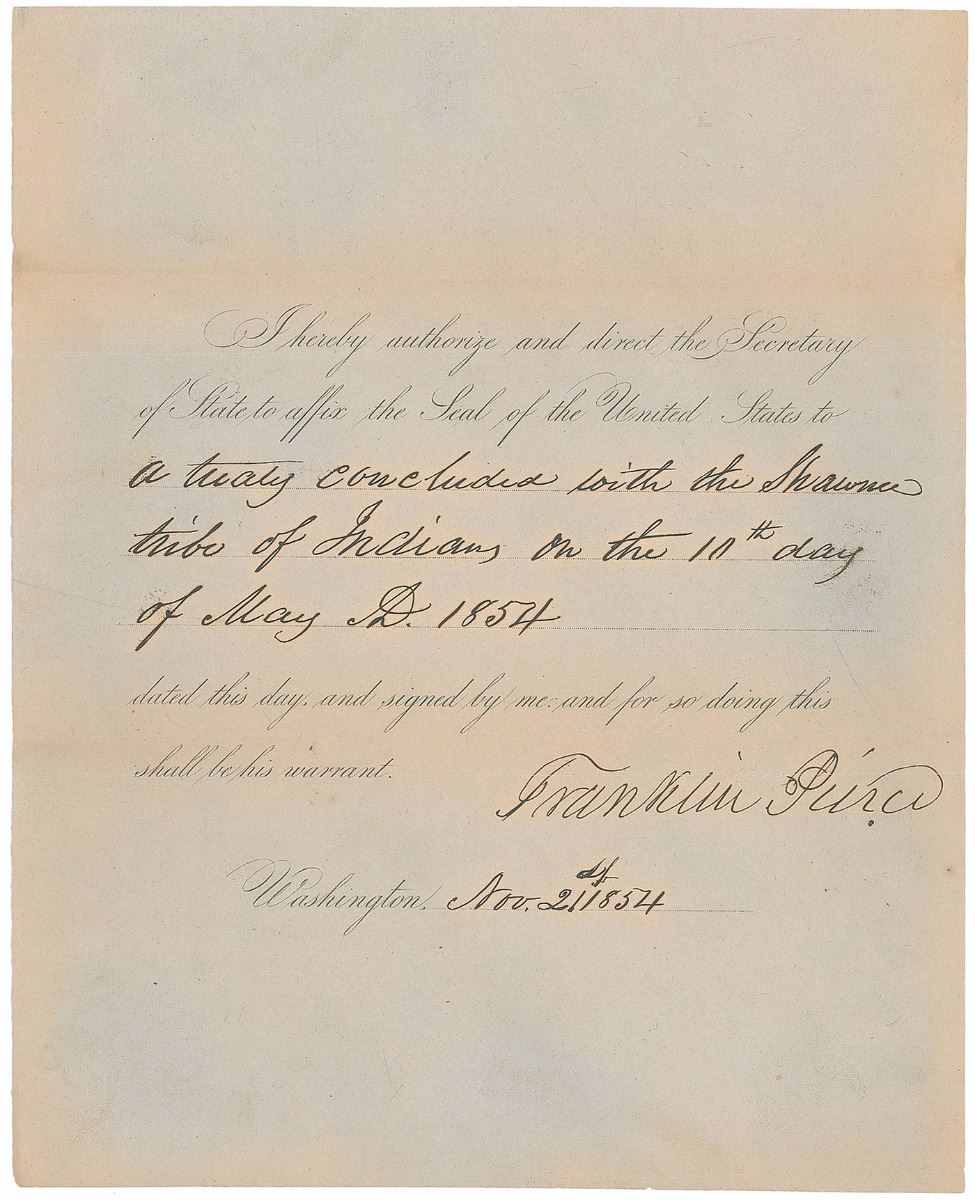 I hereby authorize and direct the Secretary
of State to affix the Seal of the United States to
a treaty concluded with the Shawnee
tribe of Indians on the 10th day
of May AD. 1854
dated this day, and signed by me: and for so doing this
shall be his warrant.
Franklin Pierce
Washington, Nov. 21st 1854